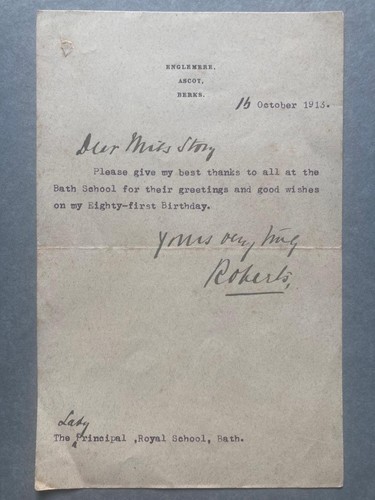 ENGLEMERE,
ASCOT,
BERKS.
16 October 1913.
Dear Miss Story
Please give my best thanks to all at the
Bath School for their greetings and good wishes
on my Eighty-first Birthday.
Yours very truly
Roberts,
Lady
The Principal ,Royal School, Bath.